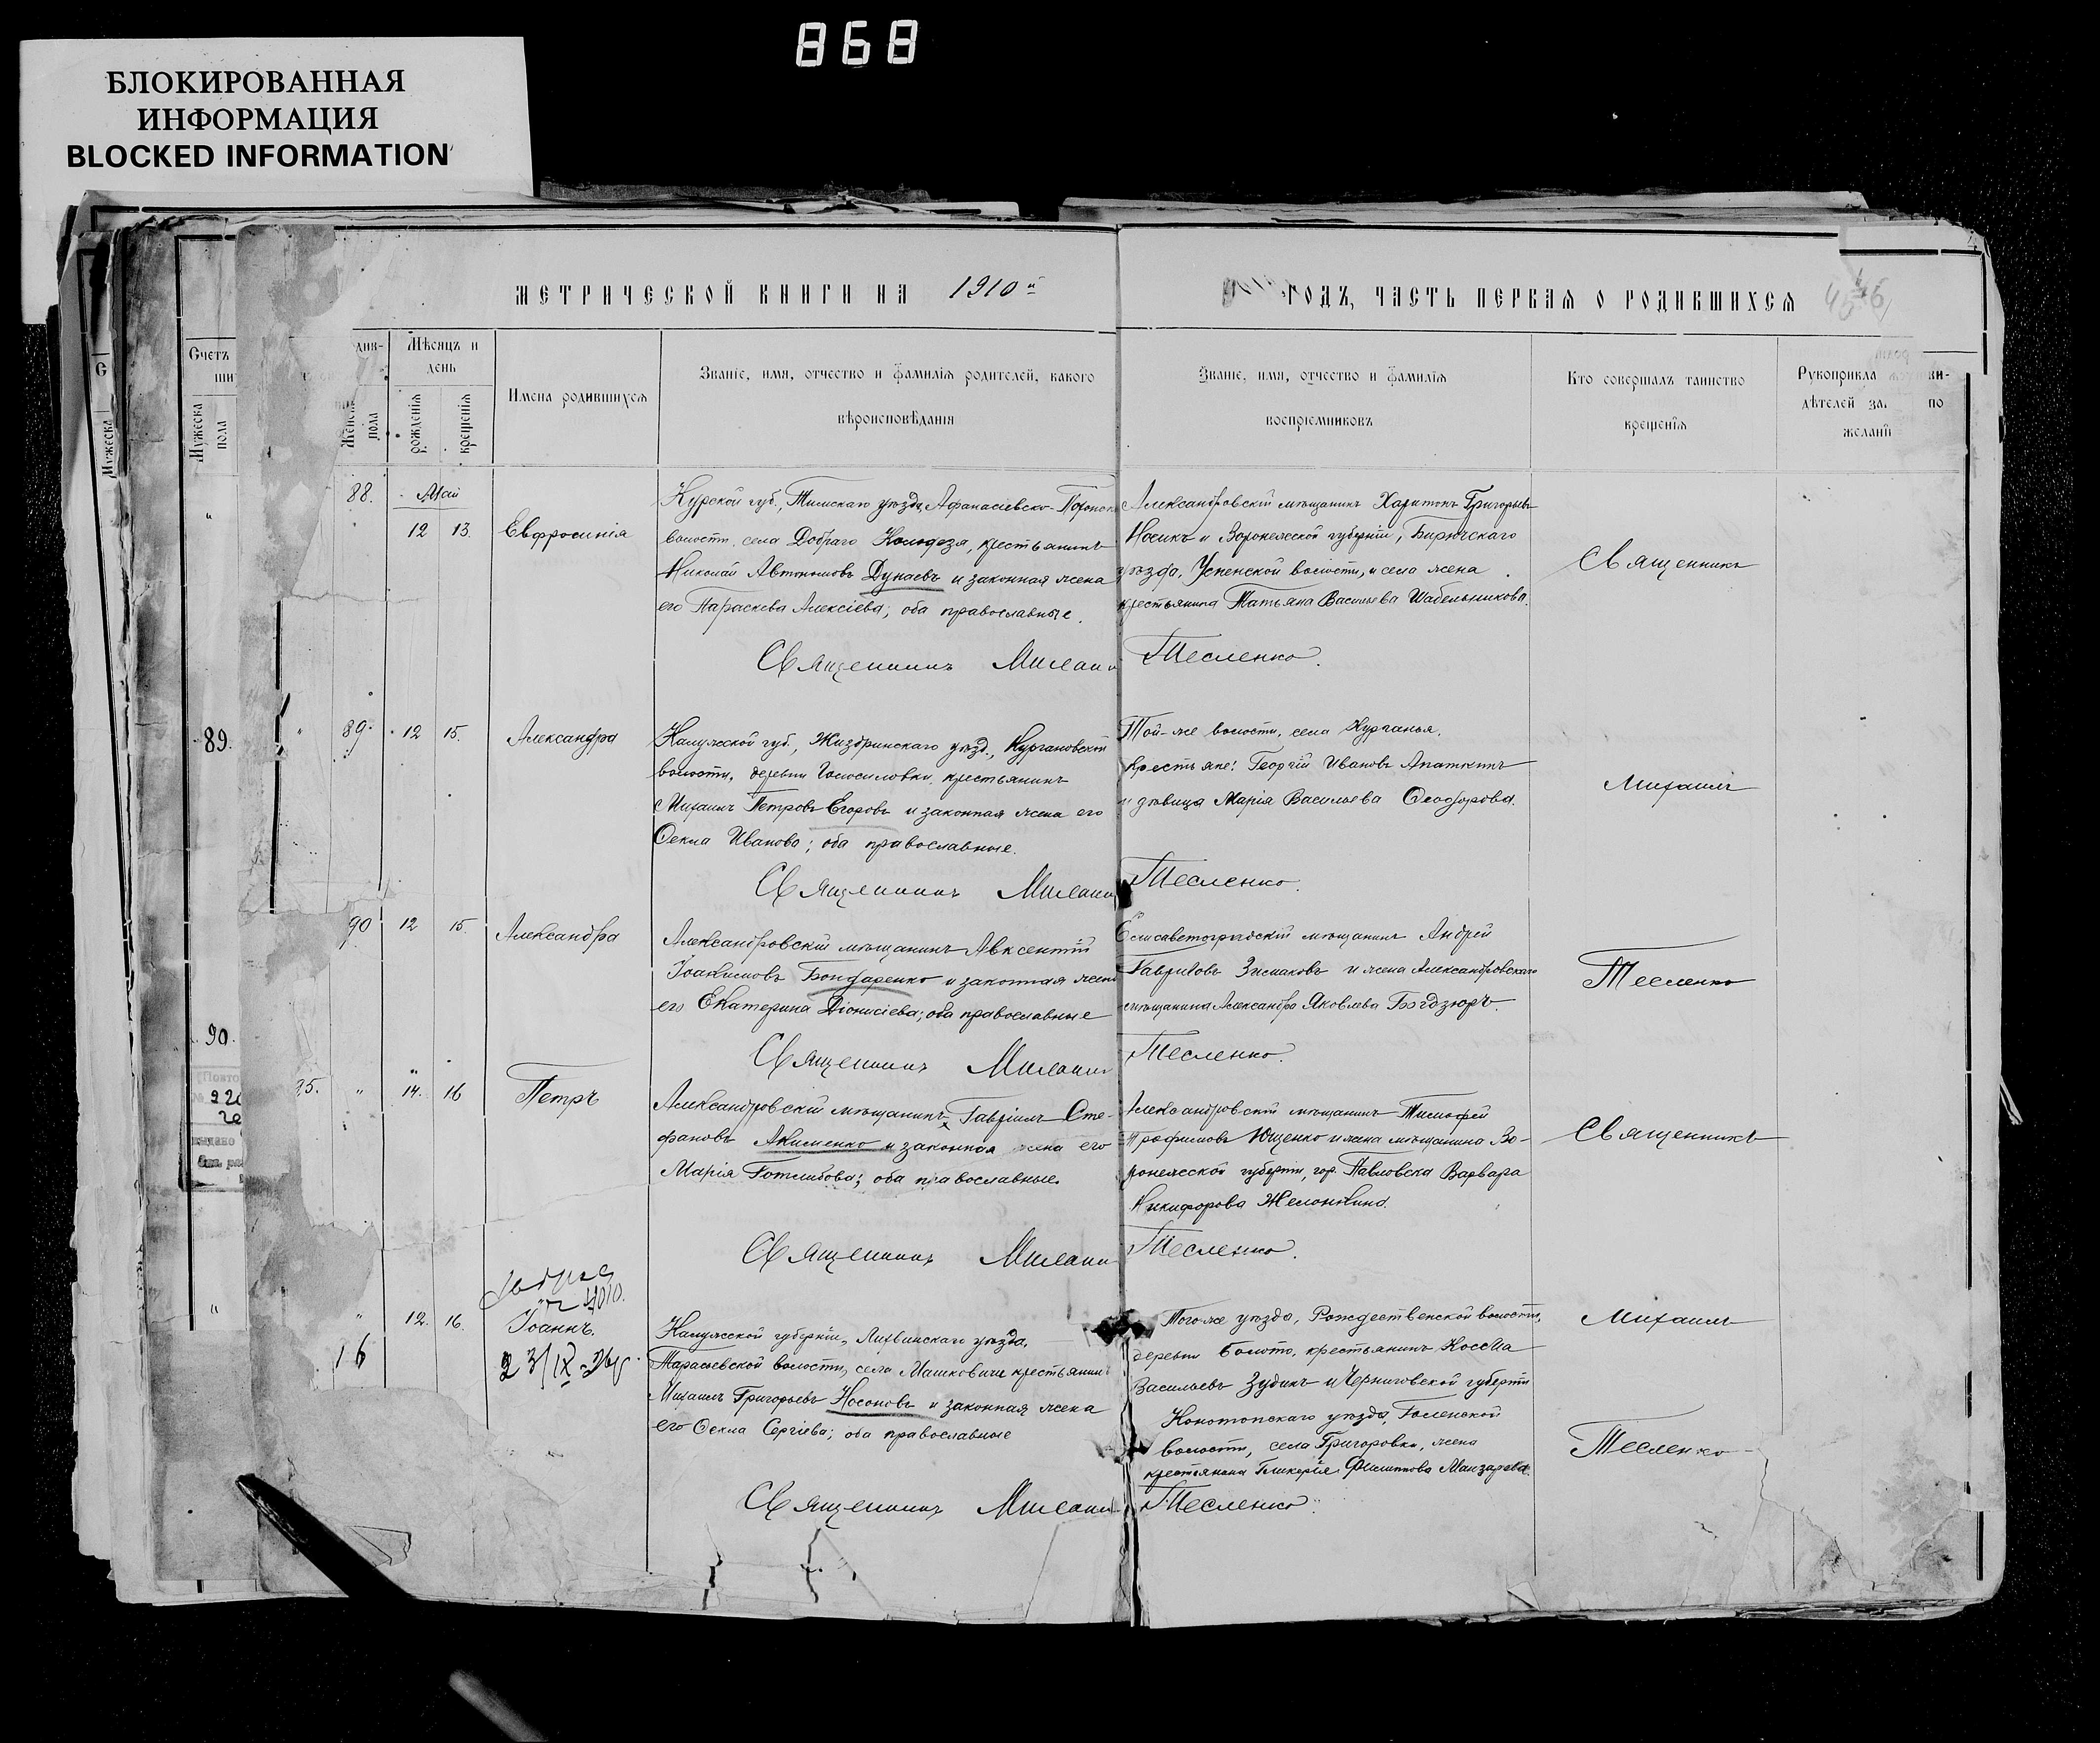 868
БЛОКИРОВАННАЯ
ИНФОРМАЦИЯ
BLOCKED INFORMATION
МЕТРИЧЕСКОЙ КНИГИ НА 1910й
ГОДЪ, ЧАСТЬ ПЕРВАЯ О РОДИВШИХСЯ
Счетъ
Мужеска
пола
Мужеска
Женска
пола
Мѣсяцъ и
день
рожденія
крещенія
Имена родившихся
Званіе, имя, отчество и фамилія родителей, какого
вѣроисповѣданія
Званіе, имя, отчество и фамилія
воспріемниковъ
Кто совершалъ таинство
крещенія
Рукоприкла
дѣтелей за по
желані
88. Май
12 13. Евфросинія
Курской губ., Тимскаго уѣзда, Афанасіевско-
волости, села Добраго Колодезя, крестьянинъ
Николай Автономовъ Дунаевъ и законная жена
его Параскева Алексіева; оба православные.
Александровскій мѣщанинъ Харитонъ Григорьевъ
Носикъ и Воронежской губерніи, Бирючскаго
уѣзда, Успенской волости, и села жена
крестьянина Татьяна Васильева Шабельникова.
Священникъ
Священникъ Михаилъ Тесленко.
89.
89. 12 15. Александра
Калужской губ., Жиздринскаго уѣзд., Кургановской
волости, деревни Голосиловки, крестьянинъ
Михаилъ Петровъ Егоровъ и законная жена его
Ѳекла Иванова; оба православные.
Той-же волости, села Курганья,
крестьяне: Георгій Ивановъ Апаткинъ
и дѣвица Марія Васильева Ѳеодорова.
Михаилъ
Священникъ Михаилъ Тесленко.
90 12 15. Александра
Александровскій мѣщанинъ Авксентій
Іоакимовъ Бондаренко и законная жена
его Екатерина Діонисіева; оба православные
Елисаветоградскій мѣщанинъ Андрей
Гавриловъ Зимаковъ и жена Александровскаго
мѣщанина Александра Яковлева
Тесленко
90.
Священникъ Михаилъ Тесленко.
95. " 14. 16 Петръ
Александровскій мѣщанинъ Гавріилъ Сте-
фановъ Акименко и законная жена его
Марія Готлибова; оба православные.
Александровскій мѣщанинъ Тимофей
Трофимовъ Ющенко и жена мѣщанина Во-
ронежской губерніи, гор. Павловска Варвара
Никифорова Желонкина.
Священникъ
Священникъ Михаилъ Тесленко.
" 12. 16. Іоаннъ.
16
23/IX-26
Калужской губерніи, Лихвинскаго уѣзда,
Тарасьевской волости, села Машковичи крестьянинъ
Михаилъ Григорьевъ Носоновъ и законная жена
его Ѳекла Сергіева; оба православные
Того-же уѣзда, Рождественской волости,
деревни Болото, крестьянинъ Косьма
Васильевъ Зудинъ и Черниговской губерніи
Конотопскаго уѣзда, Голенской
волости, села Григоровки, жена
крестьянина Гликерія Филиппова
Михаилъ
Тесленко
Священникъ Михаилъ Тесленко.